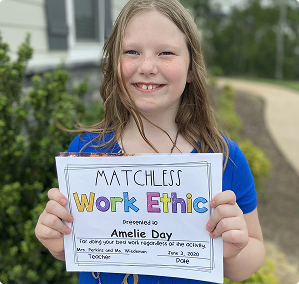 MATCHLESS
Work Ethic
Presented to
Amelie Day
For doing your best work regardless of the activity.
Mrs. Perkins and Ms. Wiedeman June 3, 2020
Teacher Date